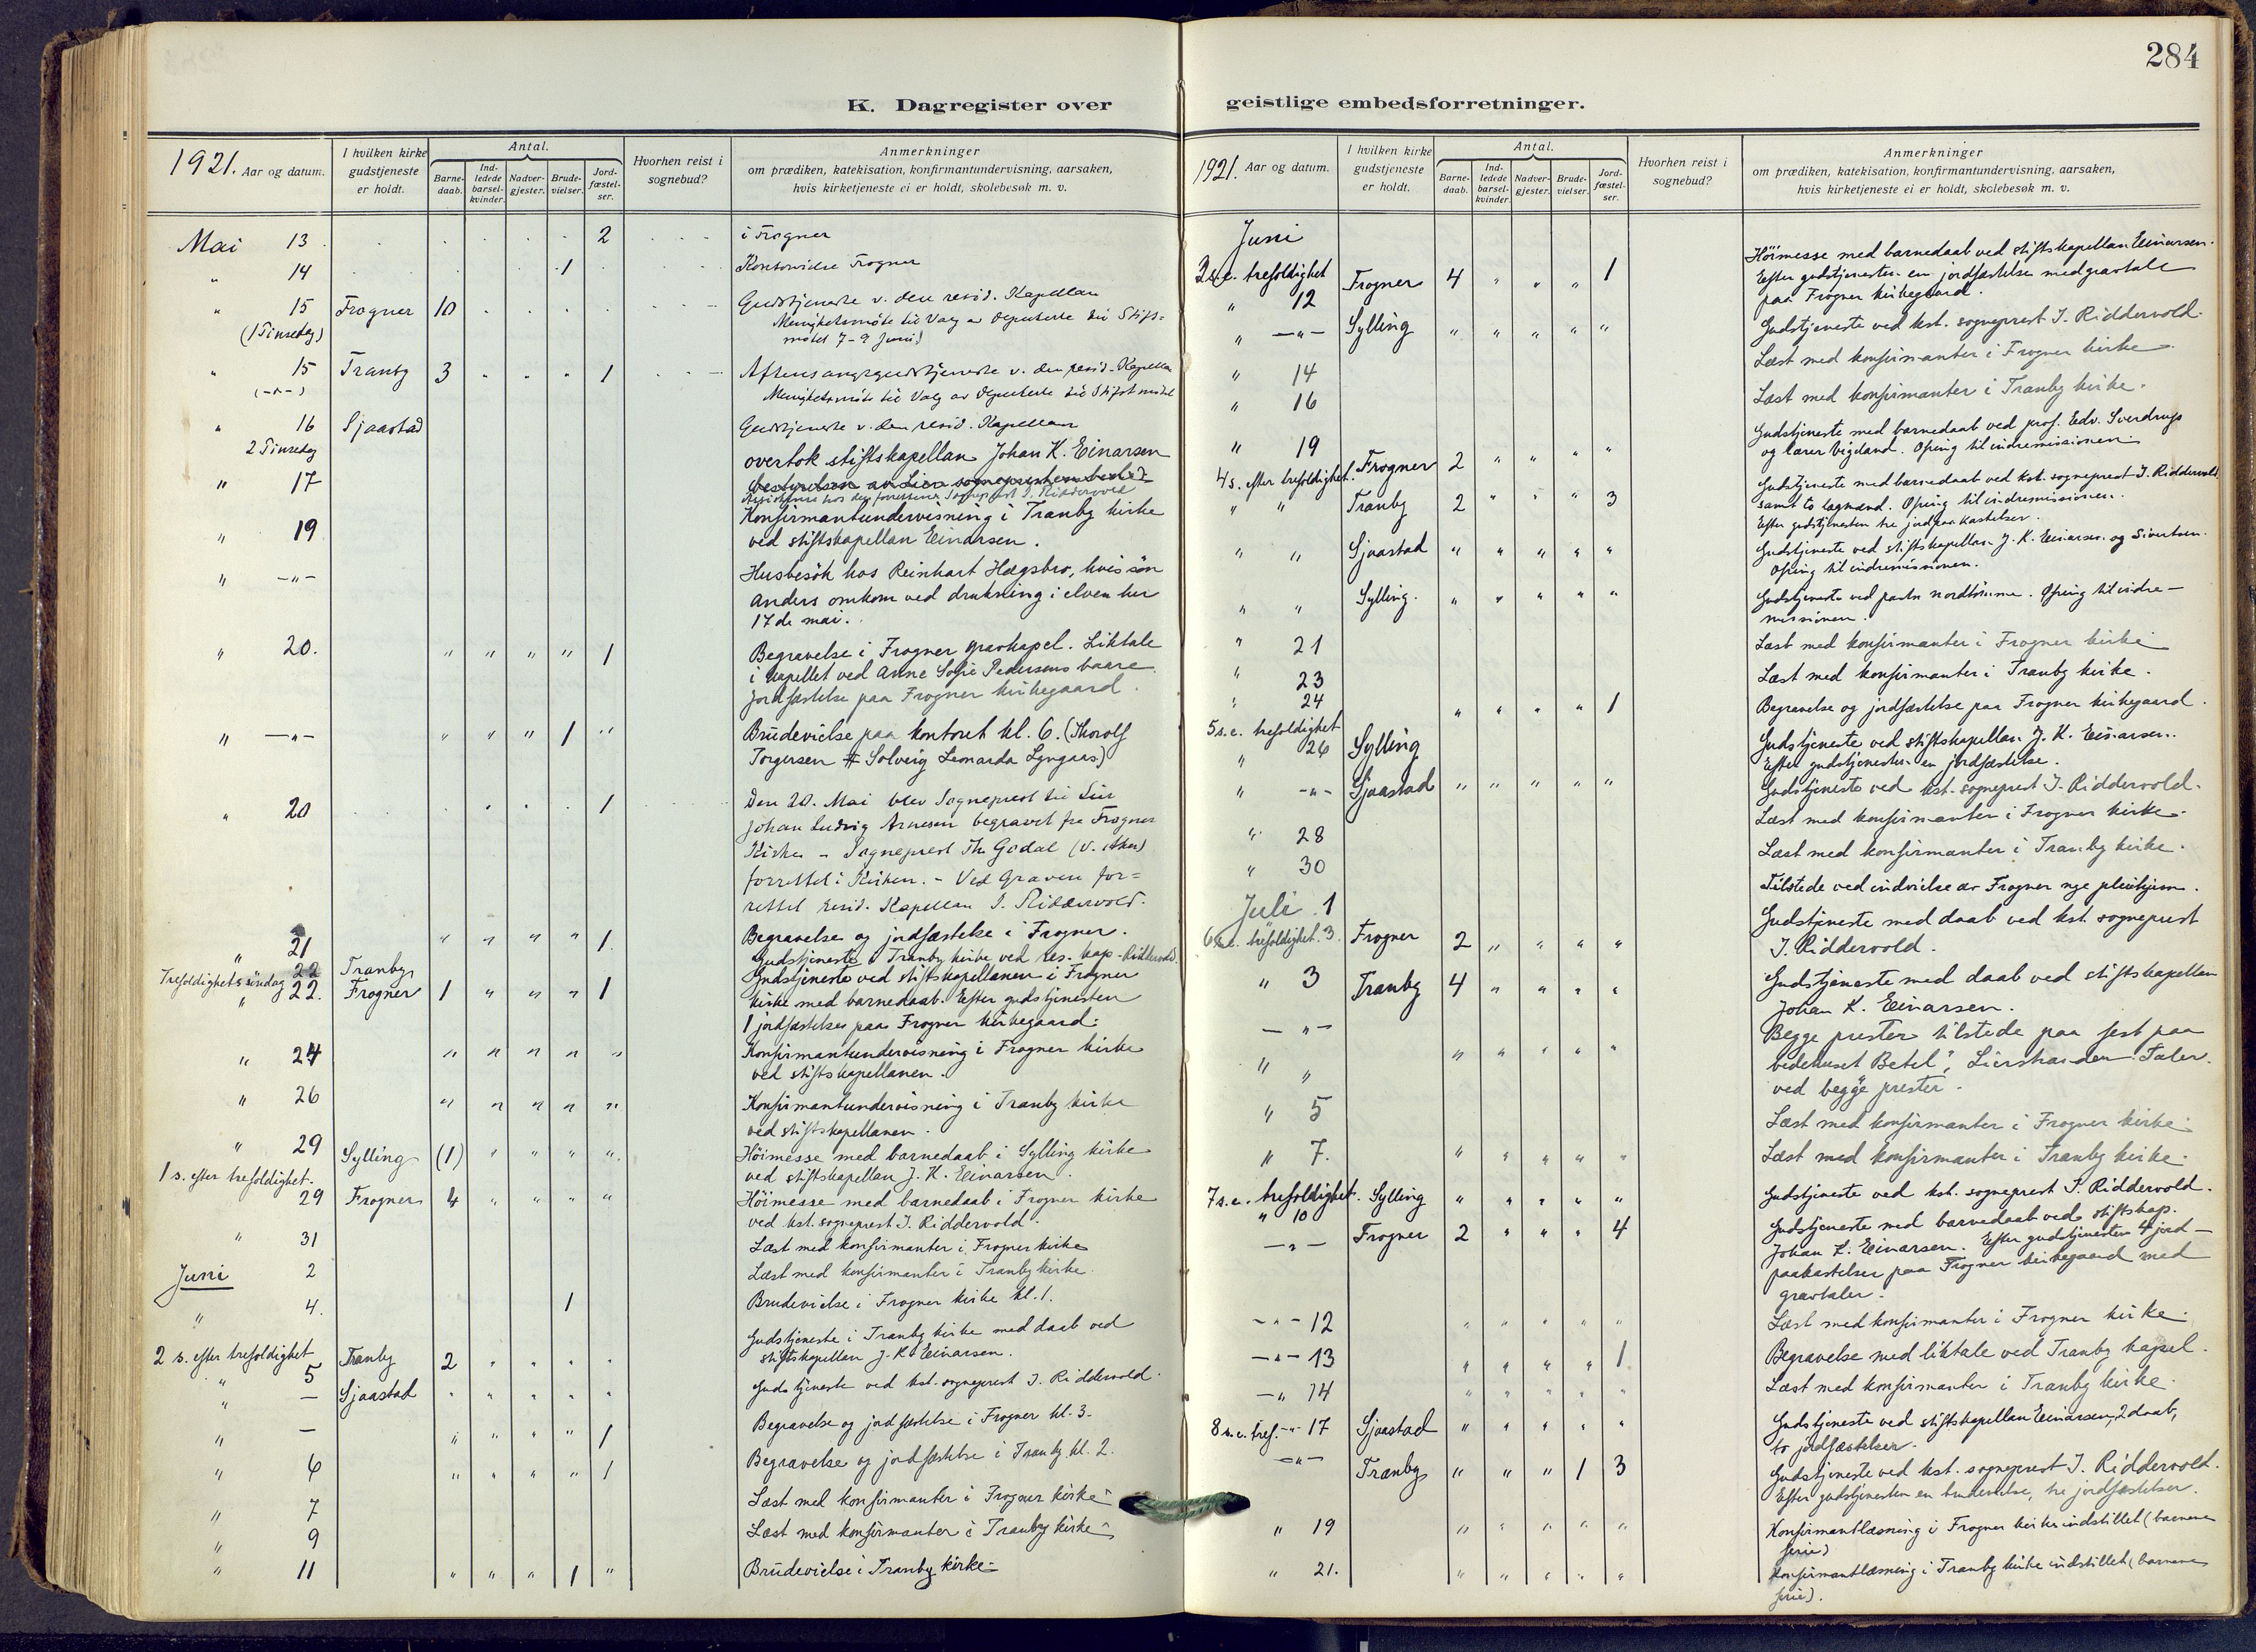 284
K. Dagregister over
geistlige embedsforretninger.
1921. Aar og datum.
I hvilken kirke gudstjeneste er holdt.
Antal.
Barne-daab.
Ind-ledede barsel-kvinder.
Nadver-gjester.
Brude-vielser.
Jord-fæstel-ser.
Hvorhen reist i sognebud?
Anmerkninger
om prædiken, katekisation, konfirmantundervisning, aarsaken,
hvis kirketjeneste ei er holdt, skolebesøk m. v.
Mai 13 . . . . . . 2 . . . i Frogner
" 14 . . . . . 1 . Frogner
" 15 Frogner 10 . . . . Gudstjeneste v. den resid. Kapellan
(1 Pinsedag) Menighetsmöte til Valg av Deputerte til Stifts=
mötet 7-9 Juni)
" 15 Tranby 3 " " " 1 Aftensangsgudstjeneste v. den resid. Kapellan
(-"-) Menighetsmöte til Valg av Deputerte til Stiftsmötet
" 16 Sjaastad Gudstjeneste v. den resid. Kapellan
2 Pinsedag
" 17 overtok stiftskapellan Johan K. Einarsen
Konfirmantundervisning i Tranby kirke
" 19 ved stiftskapellan Einarsen.
" -"- Husbesök hos Reinhart Hægsbro, hvis sön
Anders omkom ved drukning i elven her
17de mai.
" 20. " " " " 1 Begravelse i Frogner gravkapel. Liktale
i kapellet ved Anne Sofie Pedersens baare.
Jordfæstelse paa Frogner kirkegaard.
" -"- " " " 1 " Brudevielse paa kontoret kl. 6. (Thorolf
Torgersen # Solveig Leonarda Lyngaas)
" 20 . . . . 1 Den 20. Mai blev Sogneprest til Lier
Johan Ludvig Arnesen begravet fra Frogner
Kirke - Sogneprest Th. Godal (V. Aker)
forrettet i Kirken. - Ved Graven for=
rettet resid. Kapellan J. Riddervold.
" 21 " " " " 1. Begravelse og jordfæstelse i Frogner.
22 Tranby Gudstjeneste i Tranby kirke ved res. kap. Riddervold.
Trefoldighetssöndag
" 22. Frogner 1 " " " 1 Gudstjeneste ved stiftskapellanen i Frogner
kirke med barnedaab. Efter gudstjenesten
1 jordfæstelse paa Frogner kirkegaard.
" 24 " " " " " Konfirmantundervisning i Frogner kirke
ved stiftskapellanen.
" 26 " " " " " Konfirmantundervisning i Tranby kirke
ved stiftskapellanen.
" 29 Sylling (1) " " " " Höimesse med barnedaab i Sylling kirke
1 s. efter trefoldighet. ved stiftskapellan J. K. Einarsen.
29 Frogner 4 " " " " Höimesse med barnedaab i Frogner kirke
ved kst. sogneprest J. Riddervold.
" 31 Læst med konfirmanter i Frogner kirke
Juni 2 Læst med konfirmanter i Tranby kirke.
" 4. 1 Brudevielse i Frogner kirke kl. 1.
2 s. efter trefoldighet Gudstjeneste i Tranby kirke med daab ved
" 5 Tranby 2 " " " " stiftskapellan J. K. Einarsen.
" — Sjaastad " " " " " Gudstjeneste ved kst. sogneprest J. Riddervold.
" — " " " " 1 Begravelse og jordfæstelse i Frogner kl. 3.
" 6 " " " " 1 Begravelse og jordfæstelse i Tranby kl. 2.
" 7 Læst med konfirmanter i Frogner kirke
" 9 Læst med konfirmanter i Tranby kirke
" 11 " " " 1 " Brudevielse i Tranby kirke
1921. Aar og datum.
I hvilken kirke gudstjeneste er holdt.
Antal.
Barne-daab.
Ind-ledede barsel-kvinder.
Nadver-gjester.
Brude-vielser.
Jord-fæstel-ser.
Hvorhen reist i sognebud?
Anmerkninger
om prædiken, katekisation, konfirmantundervisning, aarsaken,
hvis kirketjeneste ei er holdt, skolebesøk m. v.
Juni Höimesse med barnedaab ved stiftskapellan Einarsen.
3 s.e. trefoldighet Efter gudstjenesten en jordfæstelse med gravtale
" 12 Frogner 4 " " " 1 paa Frogner kirkegaard.
" -"- Sylling " " " " " Gudstjeneste ved kst. sogneprest J. Riddervold.
" 14 Læst med konfirmanter i Frogner kirke.
" 16 Læst med konfirmanter i Tranby kirke.
" 19 Gudstjeneste med barnedaab ved prof. Edv. Sverdrup
4 s. efter trefoldighet. Frogner 2 " " " " og lærer Vigeland. Ofring til indremissionen
" " Tranby 2 " " " 3 Gudstjeneste med barnedaab ved kst. sogneprest J. Riddervold
samt to lægmænd. Ofring til indremissionen.
Efter gudstjenesten tre jordpaakastelser.
" " Sjaastad " " " " " Gudstjeneste ved stiftskapellan J. K. Einarsen og Sivertsen.
Ofring til indremissionen.
" " Sylling. " " " " " Gudstjeneste ved Ofring til indre-
missionen.
" 21 Læst med konfirmanter i Frogner kirke
" 23 Læst med konfirmanter i Tranby kirke.
" 24 " " " " 1 Begravelse og jordfæstelse paa Frogner kirkegaard.
5 s.e. trefoldighet
" 26 Sylling Gudstjeneste ved stiftskapellan J. K. Einarsen.
Efter gudstjenesten en jordfæstelse.
" -"- Sjaastad " " " " " Gudstjeneste ved kst. sogneprest J. Riddervold.
" 28 Læst med konfirmanter i Frogner kirke.
" 30 Læst med konfirmanter i Tranby kirke.
Juli 1 Tilstede ved indvielse av Frogner nye pleiehjem.
6 s.e. trefoldighet. 3. Frogner 2 " " " " Gudstjeneste med daab ved kst. sogneprest
J. Riddervold.
" 3 Tranby 4 " " " " Gudstjeneste med daab ved stiftskapellan
Johan K. Einarsen.
— " — Begge prester tilstede paa fest paa
" " " " " " " bedehuset "Betel", Lierstranden. Taler
ved begge prester.
" 5 Læst med konfirmanter i Frogner kirke.
" 7. " " " " " Læst med konfirmanter i Tranby kirke.
7 s.e. trefoldighet. Sylling " " " " " Gudstjeneste ved kst. sogneprest J. Riddervold.
" 10
— " — Frogner 2 " " " 4 Gudstjeneste med barnedaab ved stiftskap.
Johan K. Einarsen. Efter gudstjenesten 4 jord-
paakastelser paa Frogner kirkegaard med
gravtaler.
- " - 12 " " " " " Læst med konfirmanter i Frogner kirke.
- " - 13 " " " " 1 Begravelse med liktale ved Tranby kapel.
- " 14 " " " " " Læst med konfirmanter i Tranby kirke.
8 s.e. tref. -"- 17 Sjaastad " " " " " Gudstjeneste ved stiftskapellan Einarsen, 2 daab,
to jordfæstelser.
- " - Tranby " " " 1 3 Gudstjeneste ved kst. sogneprest J. Riddervold.
Efter gudstjenesten en brudevielse, tre jordfæstelser.
" 19 " " " " " Konfirmantlæsning i Frogner kirke indstillet (barnenes
ferie)
" 21. " " " " " Konfirmantlæsning i Tranby kirke indstillet (barnenes
ferie).